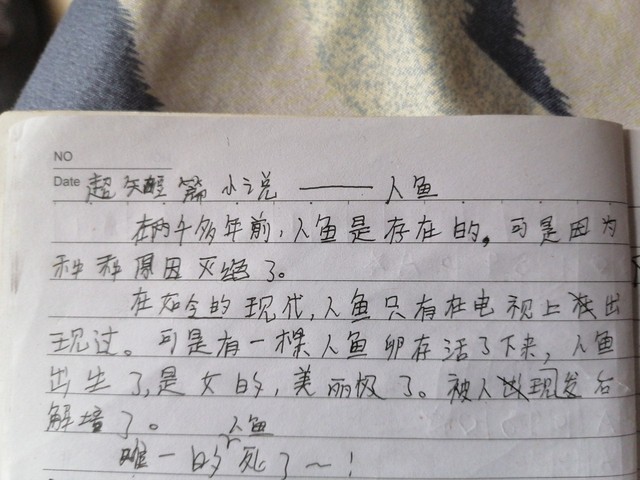 NO
Date 超短篇小说——人鱼
在两千多年前,人鱼是存在的,可是因为
种种原因灭绝了。
在如今的现代,人鱼只有在电视上出
现过。可是有一棵人鱼卵存活了下来,人鱼
出生了,是女的,美丽极了。被人发现后
解培了。
唯一的人鱼死了~!